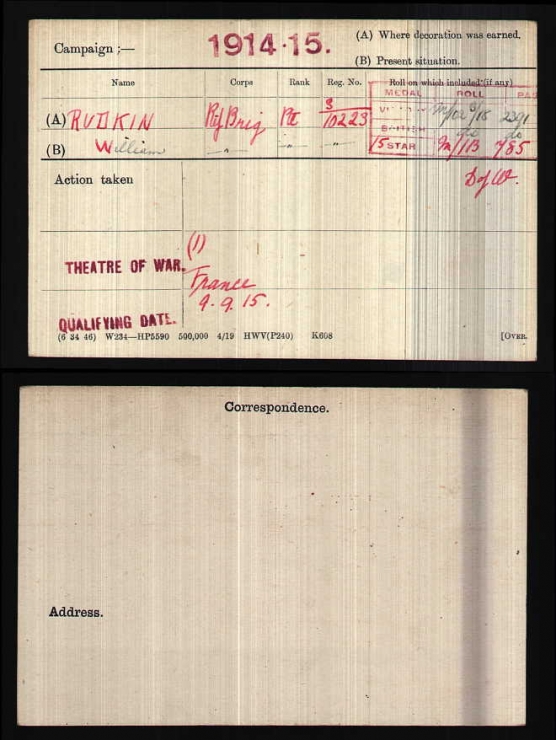 Campaign :—
1914·15.
(A) Where decoration was earned.
(B) Present situation.
Name Corps Rank Reg. No. Roll on which included (if any)
MEDAL ROLL PAGE
(A) RUDKIN Rif Brig Pte S/10223 2391
(B) William —„— —„— —„— BRITISH do do
15 STAR 785
Action taken
D of W.
THEATRE OF WAR. (1) France
QUALIFYING DATE. 9.9.15.
(6 34 46) W234—HP5590 500,000 4/19 HWV(P240) K608 [OVER.
Correspondence.
Address.